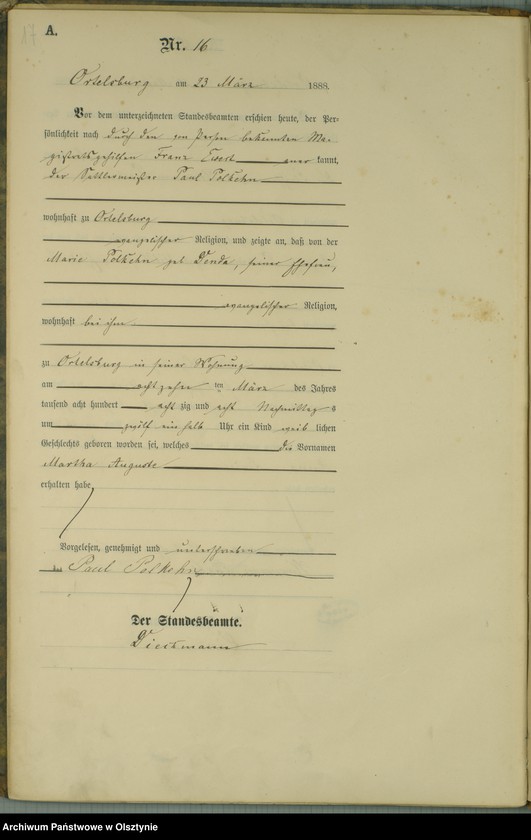 A.
Nr. 16
Ortelsburg am 23 März 1888.
Vor dem unterzeichneten Standesbeamten erschien heute, der Per-
sönlichkeit nach durch den von Person bekannten Ma-
gistratsgehilfen Franz aner kannt,
der Sattlermeister Paul Polkehn
wohnhaft zu Ortelsburg
evangelischer Religion, und zeigte an, daß von der
Marie Polkehn geb Denda, seiner Ehefrau,
evangelischer Religion,
wohnhaft bei ihm
zu Ortelsburg in seiner Wohnung
am achtzehn ten März des Jahres
tausend acht hundert acht zig und acht Nachmittags
um zwölf ein halb Uhr ein Kind weib lichen
Geschlechts geboren worden sei, welches die Vornamen
Martha Auguste
erhalten habe
Vorgelesen, genehmigt und unterschrieben
Paul Polkehn
Der Standesbeamte.
Archiwum Państwowe w Olsztynie